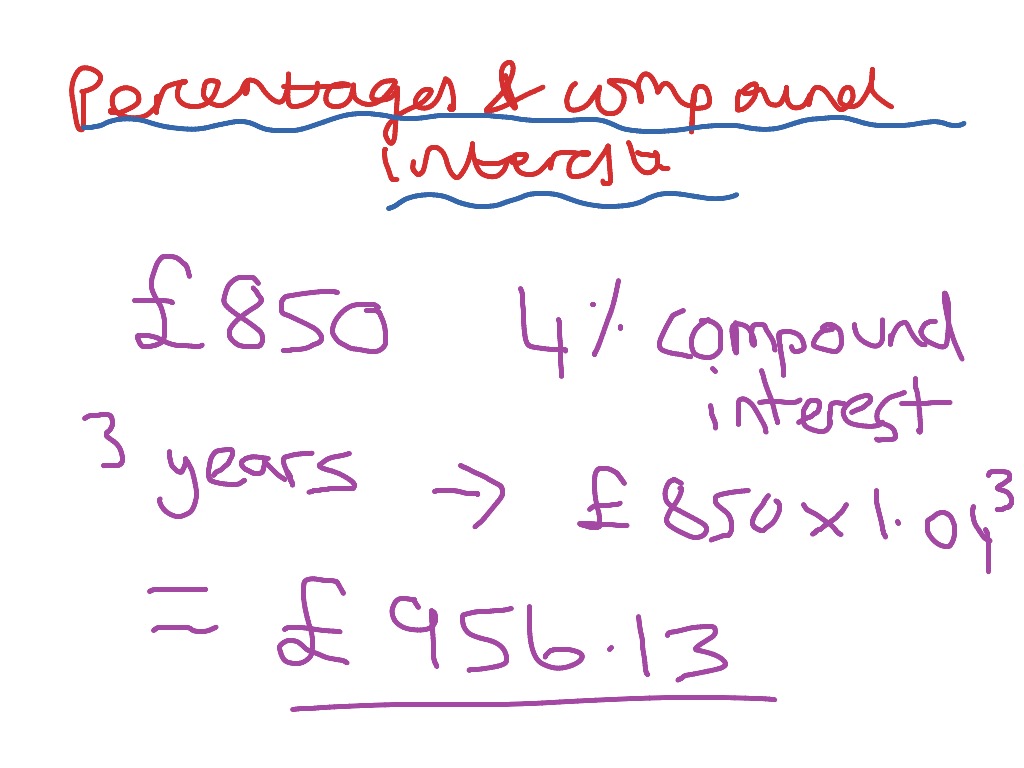 Percentages & compound
interest
£850 4% compound
interest
3 years → £850 x 1.04³
= £956.13